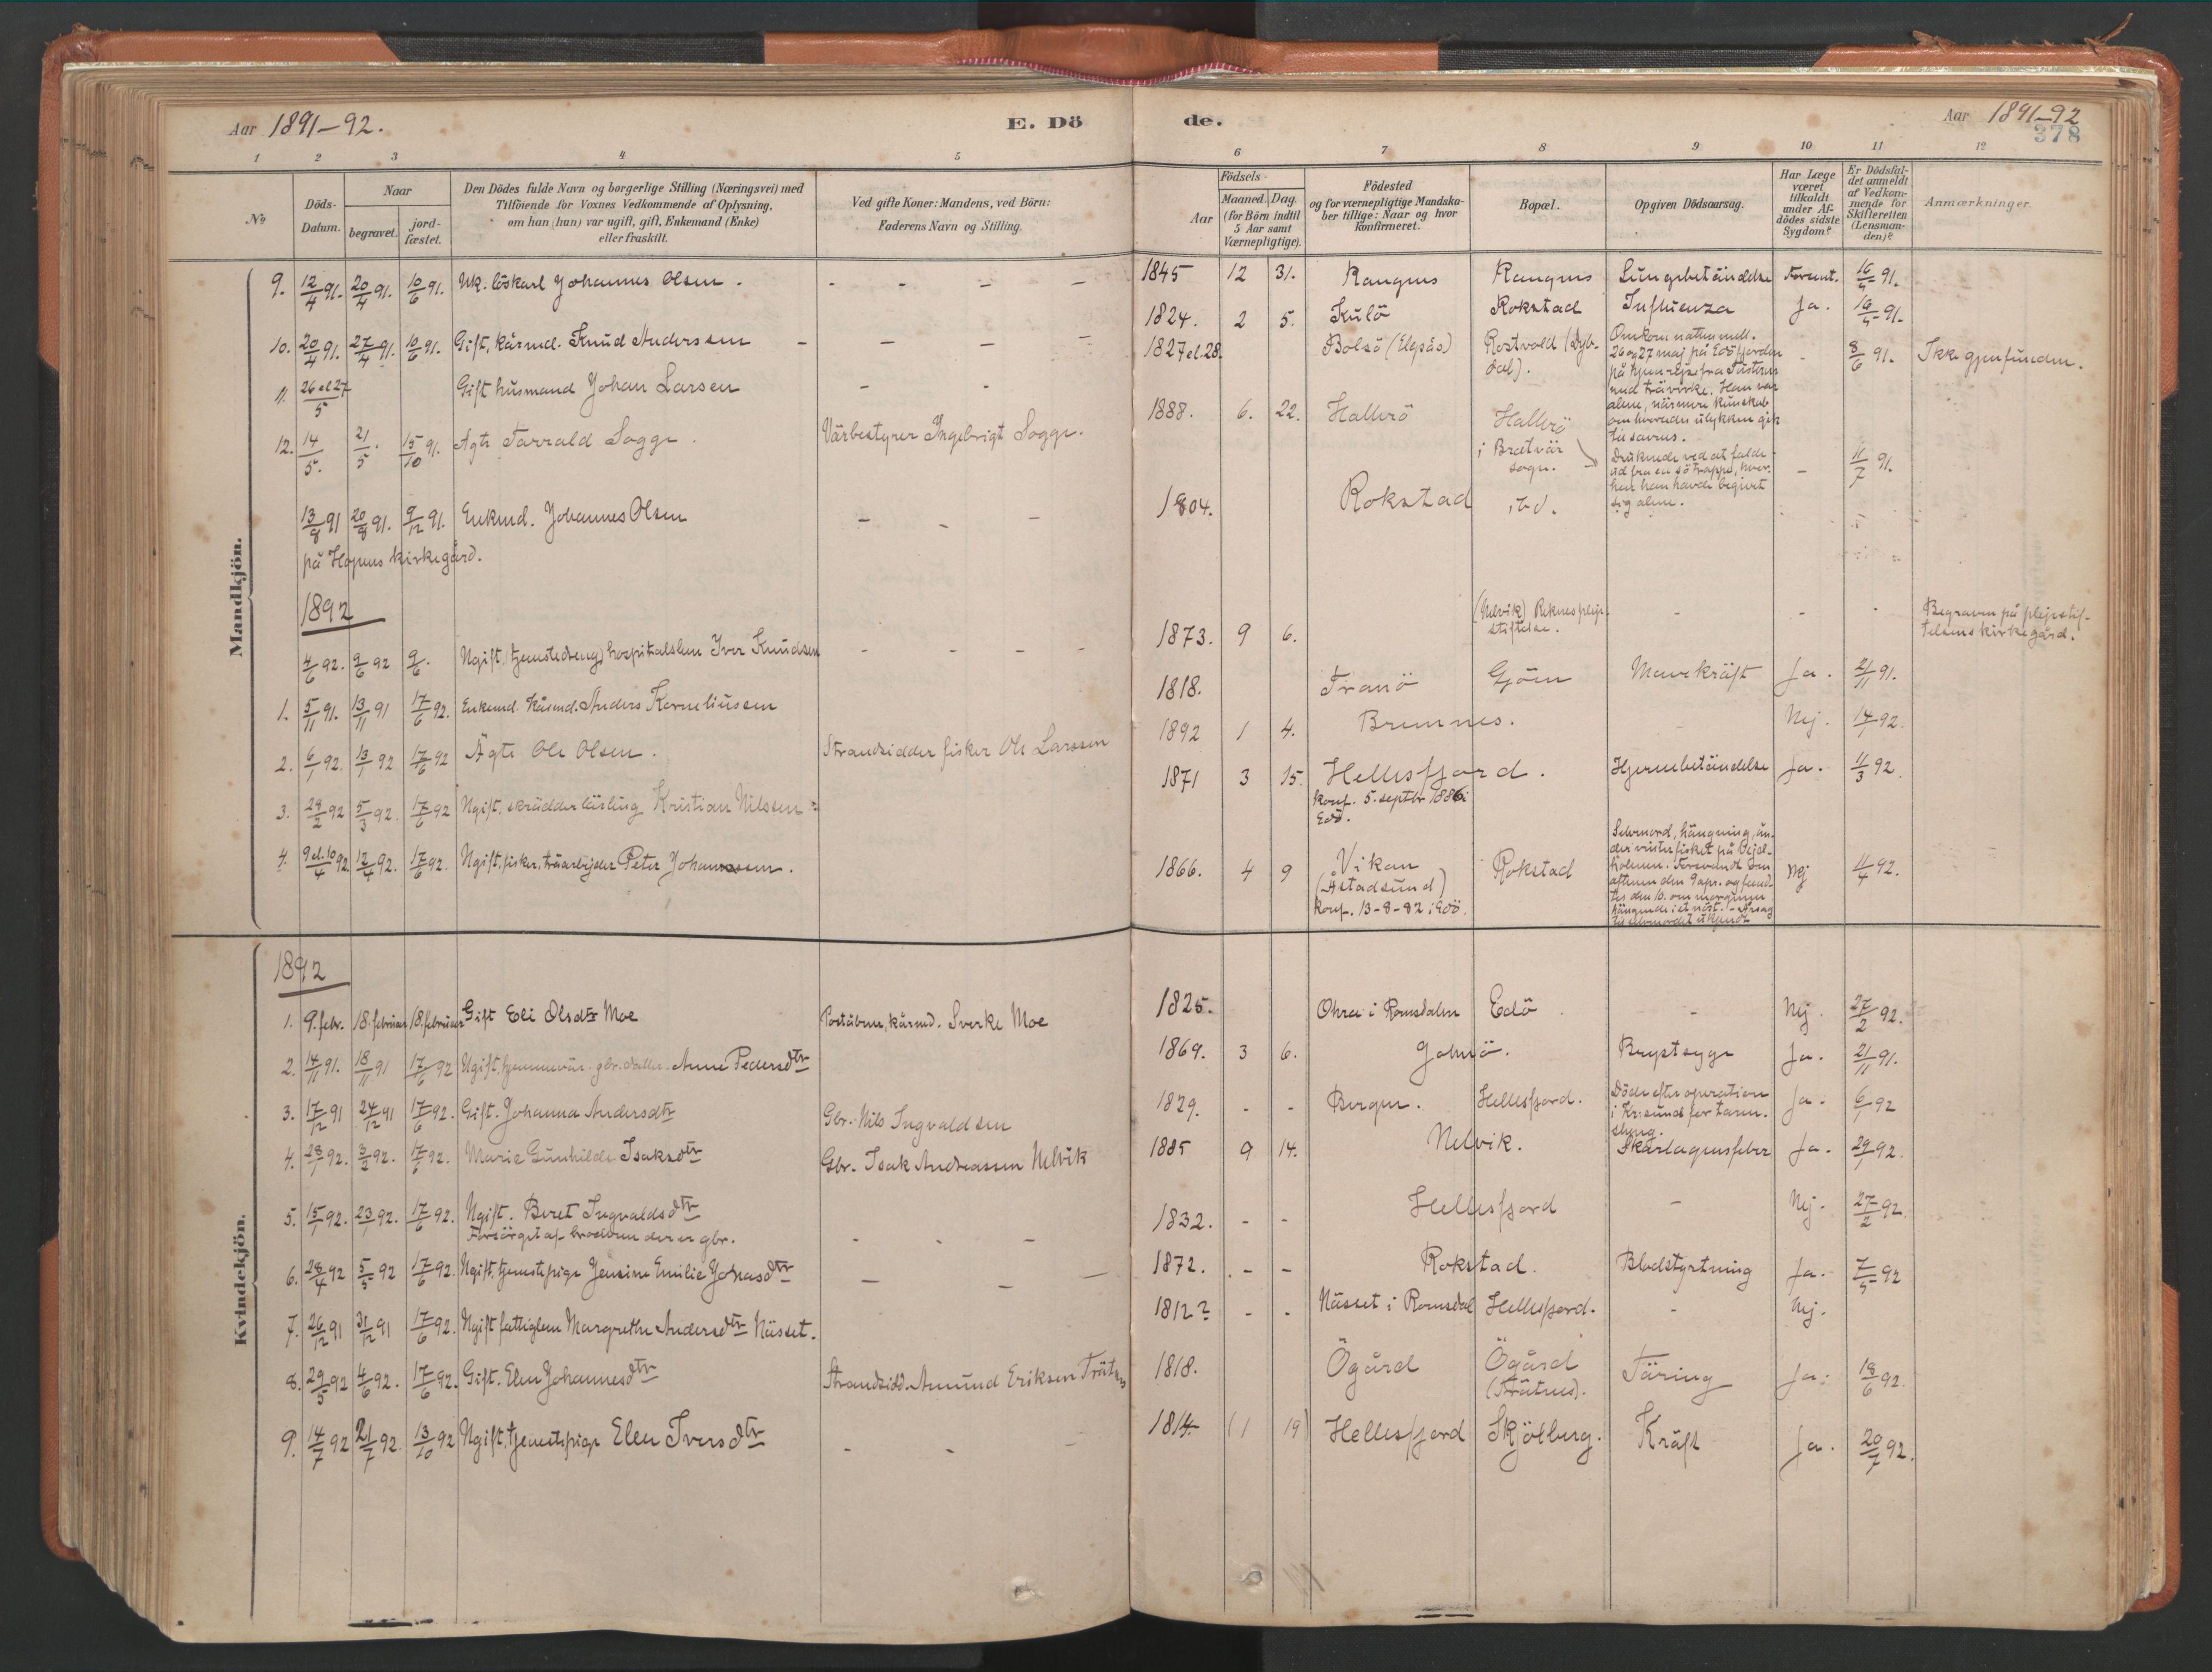 Aar 1891-92.
E. Dö
de.
Aar 1891-92
378
1 2 3 4 5 6 7 8 9 10 11 12
No
Döds-Datum.
Naar
begravet.
jord-fæstet.
Den Dödes fulde Navn og borgerlige Stilling (Næringsvei) med
Tilföiende for Voxnes Vedkommende af Oplysning,
om han (hun) var ugift, gift, Enkemand (Enke)
eller fraskilt.
Ved gifte Koner: Mandens, ved Börn:
Faderens Navn og Stilling.
Födsels-
Aar
Maaned. Dag.
(for Börn indtil
5 Aar samt
Værnepligtige).
Födested
og for værnepligtige Mandska-
ber tillige: Naar og hvor
konfirmeret.
Bopæl.
Opgiven Dödsaarsag.
Har Læge
været
tilkaldt
under Af-
dödes sidste
Sygdom?
Er Dödsfal-
det anmeldt
af Vedkom-
mende for
Skifteretten
(Lensman-
den)?
Anmærkninger.
Mandkjön.
9. 12/4 91. 20/4 91. 10/6 91. Uk. löskarl Johannes Olsen. - - - - 1845 12 31. Rangnes Rangnes Lungebetändelse 16/5 91.
10. 20/4 91. 27/4 91. 10/6 91. Gift, kårmd. Knud Anderssen - - - - 1824. 2 5. Kulö Rokstad Influenza Ja. 16/5 91.
11. 26 el 27/5 Gift husmand Johan Larsen - - 1827 el. 28. Bolsö (Elgsås) Rostvold (Dyb-
dal). Omkom natten mell.
26 og 27 maj på Edöfjorden
på hjemrejse fra
med trävirke. Han var
alene, närmere kundskab
om hvorledes ulykken gik
til savnes. - 8/6 91. Ikke gjenfunden.
12. 14/5. 21/5. 15/10 91. Ägte Tarrald Sogge. Värbestyrer Ingebrigt Sogge. 1888. 6. 22. Hallerö Hallerö
i Bratvär
sogn. Druknede ved at falde
ud fra en sötrappe, hvor-
hen han havde begivet
sig alene. - 11/7 91.
13/8 91 20/8 91. 9/12 91. Enkmd. Johannes Olsen - - - 1804. Rokstad ibd.
på Hopens kirkegård.
1892
4/6 92. 9/6 92 9/6. Ugift, (tjenestedreng) hospitalslem Iver Knudsen - - - - 1873. 9 6. (Nelvik) Reknes pleje-
stiftelse. - - - Begraven på plejestif-
telsens kirkegård.
1. 5/11 91. 13/11 91 17/6 92. Enkemd. Kårmd. Anders Korneliussen 1818. Tranö Gjöen Mavekräft Ja. 21/11 91.
2. 6/1 92. 13/1 92 17/6 92 Ägte Ole Olsen. Strandsidder fisker Ole Larssen 1892 1 4. Bremnes. Nej. 14/1 92.
3. 29/2 92 5/3 92. 17/6 92 Ugift, skrädderlärling Kristian Nilssen 1871 3 15. Hellesfjord. Hjernebetändelse Ja. 11/3 92.
konf. 5. septbr 1886 i
Edö.
4. 9 el. 10/4 92 12/4 92. 17/6 92. Ugift, fisker, träarbejder Peter Johanssen. 1866. 4 9 Vikan
(Astadsund)
konf. 13-8-82 i Edö. Rokstad Selvmord, hängning, un-
der vinterfisket på
Forsvandt om
aftenen den 9 apr. og fand-
tes den 10. om morgenen
hängende i et nöst. - Årsag
til selvmordet ukjendt Nej 11/4 92.
Kvindekjön.
1892
1. 9. febr. 18. februar 18. februar Gift Eli Olsdtr Moe Poståbner, kårmd. Sverke Moe 1825. i Romsdalen Edö - Nej. 27/2 92.
2. 14/11 91. 18/11 91 17/6 92 Ugift, hjemmevär. gbr. datter. Anne Pedersdtr 1869. 3 6. Brystsyge Ja. 21/11 91.
3. 17/12 91 24/12 91 17/6 92. Gift. Johanna Andersdtr Gbr. Nils Ingvaldsen 1829. - - Bergen. Hellesfjord. Döde efter operation
i Kr.sund for tarm-
slyng. Ja. 6/1 92
4. 28/1 92. 3/2 92. 17/6 92. Marie Gunhilde Isaksdtr Gbr. Isak Andreassen Nelvik 1885 9 14. Nelvik. Skarlagensfeber Ja. 29/1 92.
5. 15/1 92. 23/1 92. 17/6 92. Ugift. Beret Ingvaldsdtr
Forsörget af broderen der er gbr. - - - 1832. - - Hellesfjord - Nej. 27/2 92.
6. 28/4 92 5/5 92 17/6 92. Ugift, tjenestepige Jensine Emilie Jonasdtr - - - 1872. - - Rokstad. Blodstyrtning Ja. 7/5 92
7. 26/12 91 31/12 91 17/6 92. Ugift fattiglem Margrethe Andersdtr Nässet. 1812? - - Nässet i Romsdal Hellesfjord. - Nej.
8. 29/5 92 4/6 92. 17/6 92. Gift. Elen Johannesdtr Strandsidd. Amund Eriksen Trätnes 1818. Ögård Ögård
(Trätnes). Täring Ja. 18/6 92.
9. 14/7 92 21/7 92. 13/10 92 Ugift, tjenestepige Elen Iversdtr - - - 1814 (1 19) Hellesfjord Skjölberg. Kräft Ja. 20/7 92.